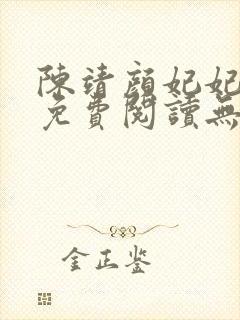 陳靖顔妃妃
免費閱讀無
金正鉴